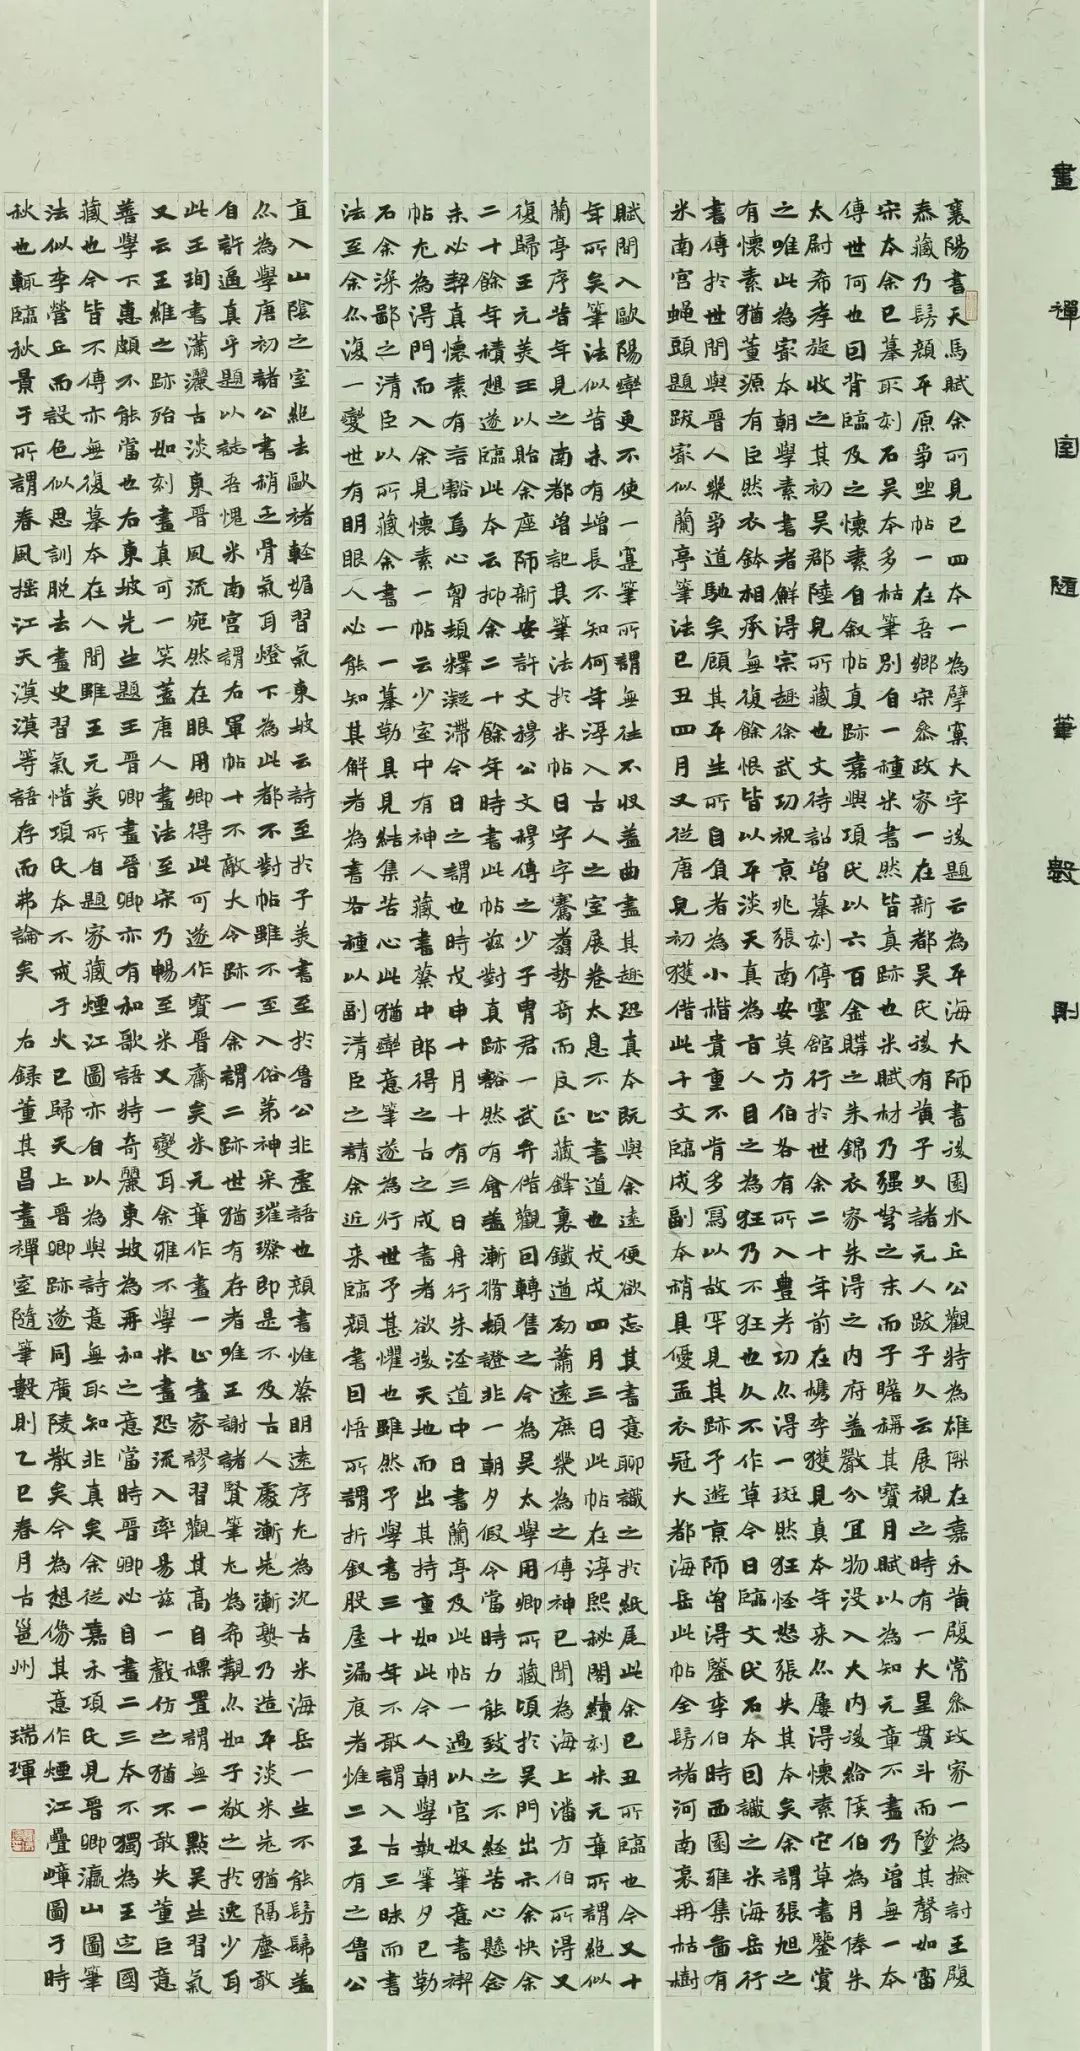 畫禪室隨筆數則
襄陽書天馬賦余所見已四本一為擘窠大字後題云為平海大師書後園水丘公觀特為雄傑在嘉禾黃履常參政家一為撿討王履
泰藏乃鬅顏平原爭坐帖一在吾鄉宋參政家一在新都吳氏後有黃子久諸元人跋子久云展視之時有一大星貫斗而墜其聲如雷
宋本余已摹取刻石吳本多枯筆別自一種米書然皆真跡也米賦材乃強弩之末而子瞻稱其寶月賦以為知元章不盡乃曾無一本
傳世何也回背臨及之懷素自叙帖真跡嘉興項氏以六百金購之朱錦衣家朱得之內府蓋嚴分宜物沒入大內後給侯伯為月俸朱
太尉希孝旋收之其初吳郡陸皃所藏也文待詔曾摹刻停雲館行於世余二十年前在檇李獲見真本年來亦屢得懷素它草書鑒賞
之唯此為宷本朝學素書者鮮得宗趣徐武功祝京兆張南安莫方伯各有所入豐考功亦得一斑然狂怪怒張失其本矣余謂張旭之
有懷素猶董源有巨然衣鉢相承無復餘恨皆以平淡天真為旨人目之為狂乃不狂也久不作草今日臨文氏石本因識之米海岳行
書傳於世間與晉人幾爭道馳矣顧其平生所自負者為小楷貴重不肯多寫以故罕見其跡予遊京師曾得鑒李伯時西園雅集圖有
米南宮蝇頭題跋宷似蘭亭筆法已丑四月又從唐皃初獲借此千文臨成副本稍具優孟衣冠大都海岳此帖全鬅褚河南哀冊枯樹
賦間入歐陽率更不使一蹇筆所謂無往不收蓋曲盡其趣恐真本既與余遠便欲忘其書意聊識之於紙尾此余已丑所臨也今又十
年所矣筆法似昔未有增長不知何年得入古人之室展卷太息不止書道也戊戌四月三日此帖在淳熙秘閣續刻米元章所謂絕似
蘭亭序昔年見之南都曾記其筆法於米帖日字字騫翥勢奇而反正藏鋒裹鐵道劲蕭遠庶幾為之傳神已聞為海上潘方伯所得又
復歸王元美王以貽余座師新安許文穆公文穆傳之少子胄君一武弁借觀回轉售之今為吳太學用卿所藏頃於吳門出示余快余
二十餘年積想遂臨此本云抑余二十餘年時書此帖茲對真跡豁然有會蓋漸脩頓證非一朝夕假令當時力能致之不經苦心懸念
未必契真懷素有言豁焉心胷頓釋凝滯今日之謂也時戊申十月十有三日舟行朱涇道中日書蘭亭及此帖一過以官奴筆意書禊
帖尤為得門而入余見懷素一帖云少室中有神人藏書蔡中郎得之古之成書者欲後天地而出其持重如此今人朝學執筆夕已勒
石余深鄙之清臣以所藏余書一一摹勒具見結集苦心此猶率意筆遂為行世予甚懼也雖然予學書三十年不敢謂入古三昧而書
法至余亦復一變世有明眼人必能知其解者為書各種以副清臣之請余近来臨顏書因悟所謂折釵股屋漏痕者惟二王有之魯公
直入山陰之室絕去歐褚輕媚習氣東坡云詩至於子美書至於魯公非虛語也顏書惟蔡明遠序尤為沉古米海岳一生不能鬅髴蓋
亦為學唐初諸公書稍乏骨氣耳燈下為此都不對帖雖不至入俗第神采璀璨即是不及古人處漸老漸熟乃造平淡米老猶隔塵敢
自許逼真乎題以誌吾愧米南宮謂右軍帖十不敵大令跡一余謂二跡世猶有存者唯王謝諸賢筆尤為希覯亦如子敬之於逸少耳
此王珣書瀟灑古淡東晉風流宛然在眼用卿得此可遂作寶晉齋矣米元章作畫一正畫家謬習觀其高自標置謂無一點吳生習氣
又云王維之跡殆如刻畫真可一笑蓋唐人畫法至宋乃暢至米又一變耳余雅不學米畫恐流入率易茲一戲仿之猶不敢失董巨意
善學下惠頗不能當也右東坡先生題王晉卿畫晉卿亦有和歌語特奇麗東坡為再和之意當時晉卿必自畫二三本不獨為王定國
藏也今皆不傳亦無復摹本在人間雖王元美所自題家藏煙江圖亦自以為與詩意無取知非真矣余從嘉禾項氏見晉卿瀛山圖筆
法似李營丘而設色似思訓脫去畫史習氣惜項氏本不戒于火已歸天上晉卿跡遂同廣陵散矣今為想像其意作煙江疊嶂圖于時
秋也輒臨秋景于所謂春風搖江天漠漠等語存而弗論矣 右錄董其昌畫禪室隨筆數則乙巳春月古邕州 瑞琿